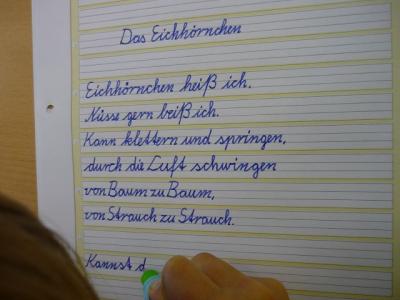 Das Eichhörnchen
Eichhörnchen heiß ich.
Nüsse gern beiß ich.
Kann klettern und springen,
durch die Luft schwingen
von Baum zu Baum,
von Strauch zu Strauch.
Kannst d